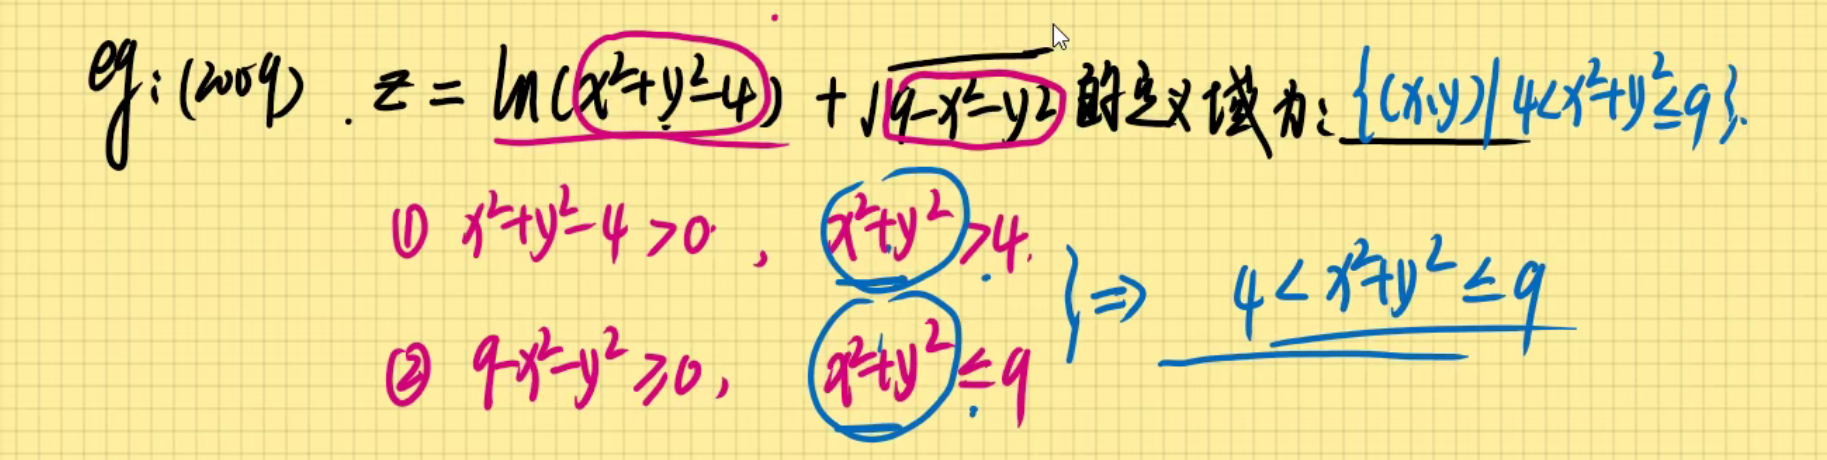 eg: (2009). z = ln(x²+y²-4) + √(9-x²-y²) 的定义域为: {(x,y) | 4<x²+y²≤9}.
① x²+y²-4>0, x²+y²>4.
} ⇒ 4<x²+y²≤9
② 9-x²-y²≥0, x²+y²≤9